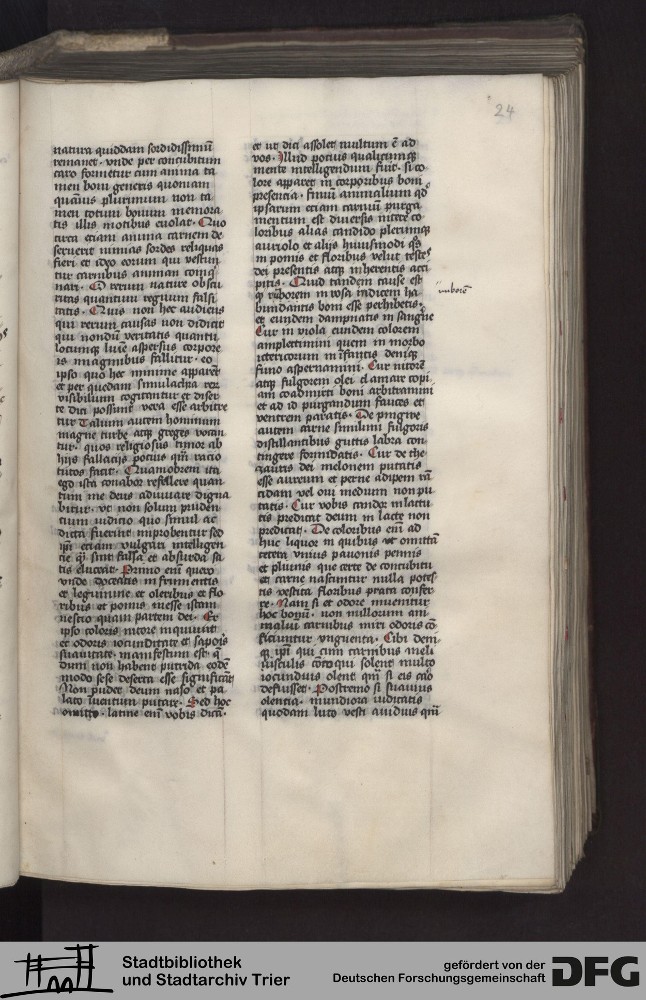 24
natura quiddam sordidissimū
remanet · vnde per concubitum
caro formetur cum anima ta
men boni generis quoniam
quāuis plurimum non ta
men totum bonum memora
tis illis motibus euolat · Quo
circa etiam anima carnem de
seruerit nimias sordes reliquas
fieri et ideo eorum qui vescun
tur carnibus animam coinq̄
nari · O rerum nature obscu
ritas quantum tegnum falsi
tatis · Quis non hec audiens
qui rerum causas non didicit
qui nondū veritatis quantu
locumq̨ luīe aspersus corpore
is imaginibus fallitur · eo
ipso quo hec minime apparēt
et per quedam simulachra rerū
visibilium cogitantur et diser
te dici possunt vera esse arbitre
tur Talium autem hominum
magne turbe atq̨ greges vocan
tur · quos religiosus timor ab
hijs fallacijs pocius quā racio
tutos facit · Quamobrem ita
ego ista conabor refellere quan
tum me deus adiuuare digna
bitur · vt non solum pruden
tium iudicio quo simul ac
dicta fuerint improbentur sed
ipsi etiam vulgari intelligen
cie q̄ sint falsa et absurda sa
tis eluceat · Primo enī quero
vnde doceatis in frumentis
et legumine et oleribus et flo
ribus et pomis inesse istam
nescio quam partem dei · Ex
ipso coloris nitore inquiunt
et odoris iocunditate et saporis
suauitate · manifestum est · q̄
dum non habent putrida eodē
modo sese deserta esse significāt
Non pudet deum naso et pa
lato inuentum putare · Sed hoc
omitto · latine enī vobis dicā ·
et ut dici assolet multum ē ad
vos · Illud pocius qualicumq̨
mente intelligendum fuit · si co
lore apparet in corporibus boni
presencia · fimū animalium qd̄
ipsarum etiam carnium purga
mentum est diuersis nitere co
loribus alias candido plerumq̨
auriolo et alijs huiusmodi q̄s
in pomis et floribus velut testes
dei presentis atq̨ inherentis acci
pitis · Quid tandem cause est
q̄ ruborem in rosa indicem ha
bundantis boni esse perhibetis ·
et eundem dampnatis in sangne
Cur in viola eundem colorem
amplectimini quem in morbo
ictericorum infantis deniq̨
fimo aspernamini · Cur nitorē
atq̨ fulgorem olei clamare copi
am coadmixti boni arbitramini
et ad id purgandum fauces et
ventrem paratis · De pingwe
autem carne similimi fulgoris
distillantibus guttis labra con
tingere formidatis · Cur de the
zauris dei melonem putatis
esse aureum et perne adipem rā
cidam vel oui medium non pu
tatis · Cur vobis candor in lactu
tis predicat deum in lacte non
predicat · De coloribus enī ad
huc liquor in quibus vt omittā
cetera vnius pauonis pennis
et plumis que certe de concubitu
et carne nascuntur nulla potes
tis vestita floribus prata confer
re · Nam si et odore inuenitur
hoc bonū · non nullorum ani
malium carnibus miri odoris cō
ficiuntur vnguenta · Cibi deni
q̨ ipsi qui cum carnibus meli
usculis coqui solent multo
iocundius olent quā si eis caro
defuisset · Postremo si suauius
olencia · mundiora iudicatis
quodam luto vesti auidius quā
ruborē
Stadtbibliothek
und Stadtarchiv Trier
gefördert von der
Deutschen Forschungsgemeinschaft
DFG